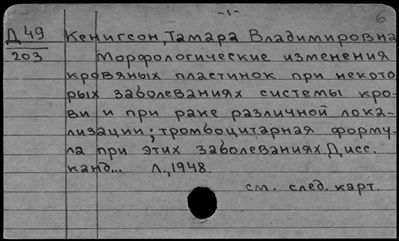 -1-
6
Д 49 Кенигсон, Тамара Владимировна
203 Морфологические изменения
кровяных пластинок при некото-
рых заболеваниях системы кро-
ви и при раке различной лока-
лизации; тромбоцитарная форму-
ла при этих заболеваниях. Дисс.
канд... Л., 1948.
см. след. карт.